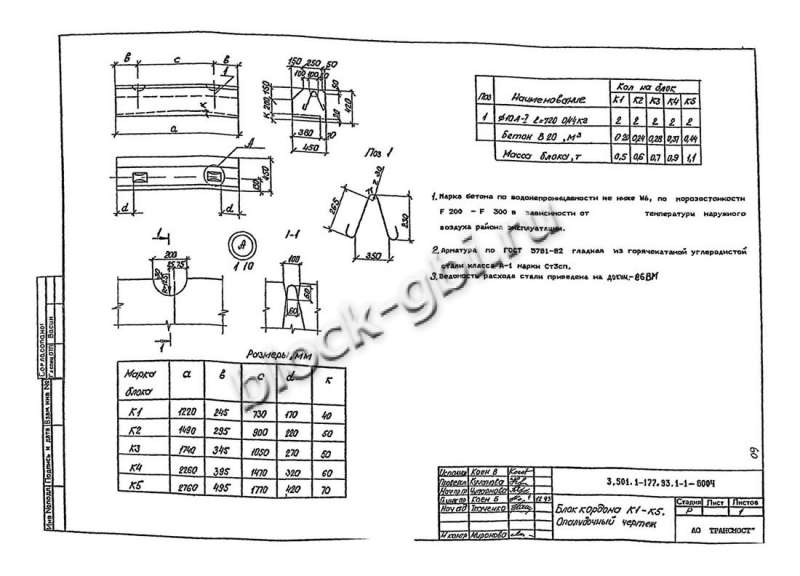 в с в
150 250 50
100 100
1
200 150
50
420
К
380 70
450
а
А
450
130
d d
Поз 1
30
265
230
350
Поз Наименование Кол на блок
К1 К2 К3 К4 К5
1 Ø10А-I ℓ=720 0,44кг 2 2 2 2 2
Бетон В 20, м³ 0,20 0,24 0,28 0,37 0,44
Масса блока, т 0,5 0,6 0,7 0,9 1,1
1. Марка бетона по водонепроницаемости не ниже W6, по морозостойкости
F 200 - F 300 в зависимости от температуры наружного
воздуха района эксплуатации.
2. Арматура по ГОСТ 5781-82 гладкая из горячекатаной углеродистой
стали класса А-1 марки Ст3сп.
3. Ведомость расхода стали приведена на докум.-86ВМ
1
200
75 75
А
1:10
1-1
100
60
60
1
Размеры, мм
Марка блока а в с d к
К1 1220 245 730 170 40
К2 1490 295 900 220 50
К3 1740 345 1050 270 50
К4 2260 395 1470 320 60
К5 2760 495 1770 420 70
block-gbi.ru
Согласовано
Инв №подл Подпись и дата Взам инв №
60
Коен В
Нач.гр
Коен Б 12.93
Нач отд Ткаченко
Н контр Миронова
3.501.1-177.93.1-1-600Ч
Блок кордона К1-К5.
Опалубочный чертеж
Стадия Лист Листов
Р 1
АО ТРАНСМОСТ"